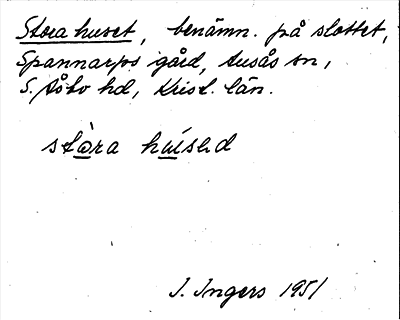 Stora huset, benämn. på slottet,
Spannarps gård, Ausås sn,
S. Åsbo hd, Krist. län.
stòra húsəd
I. Ingers 1951